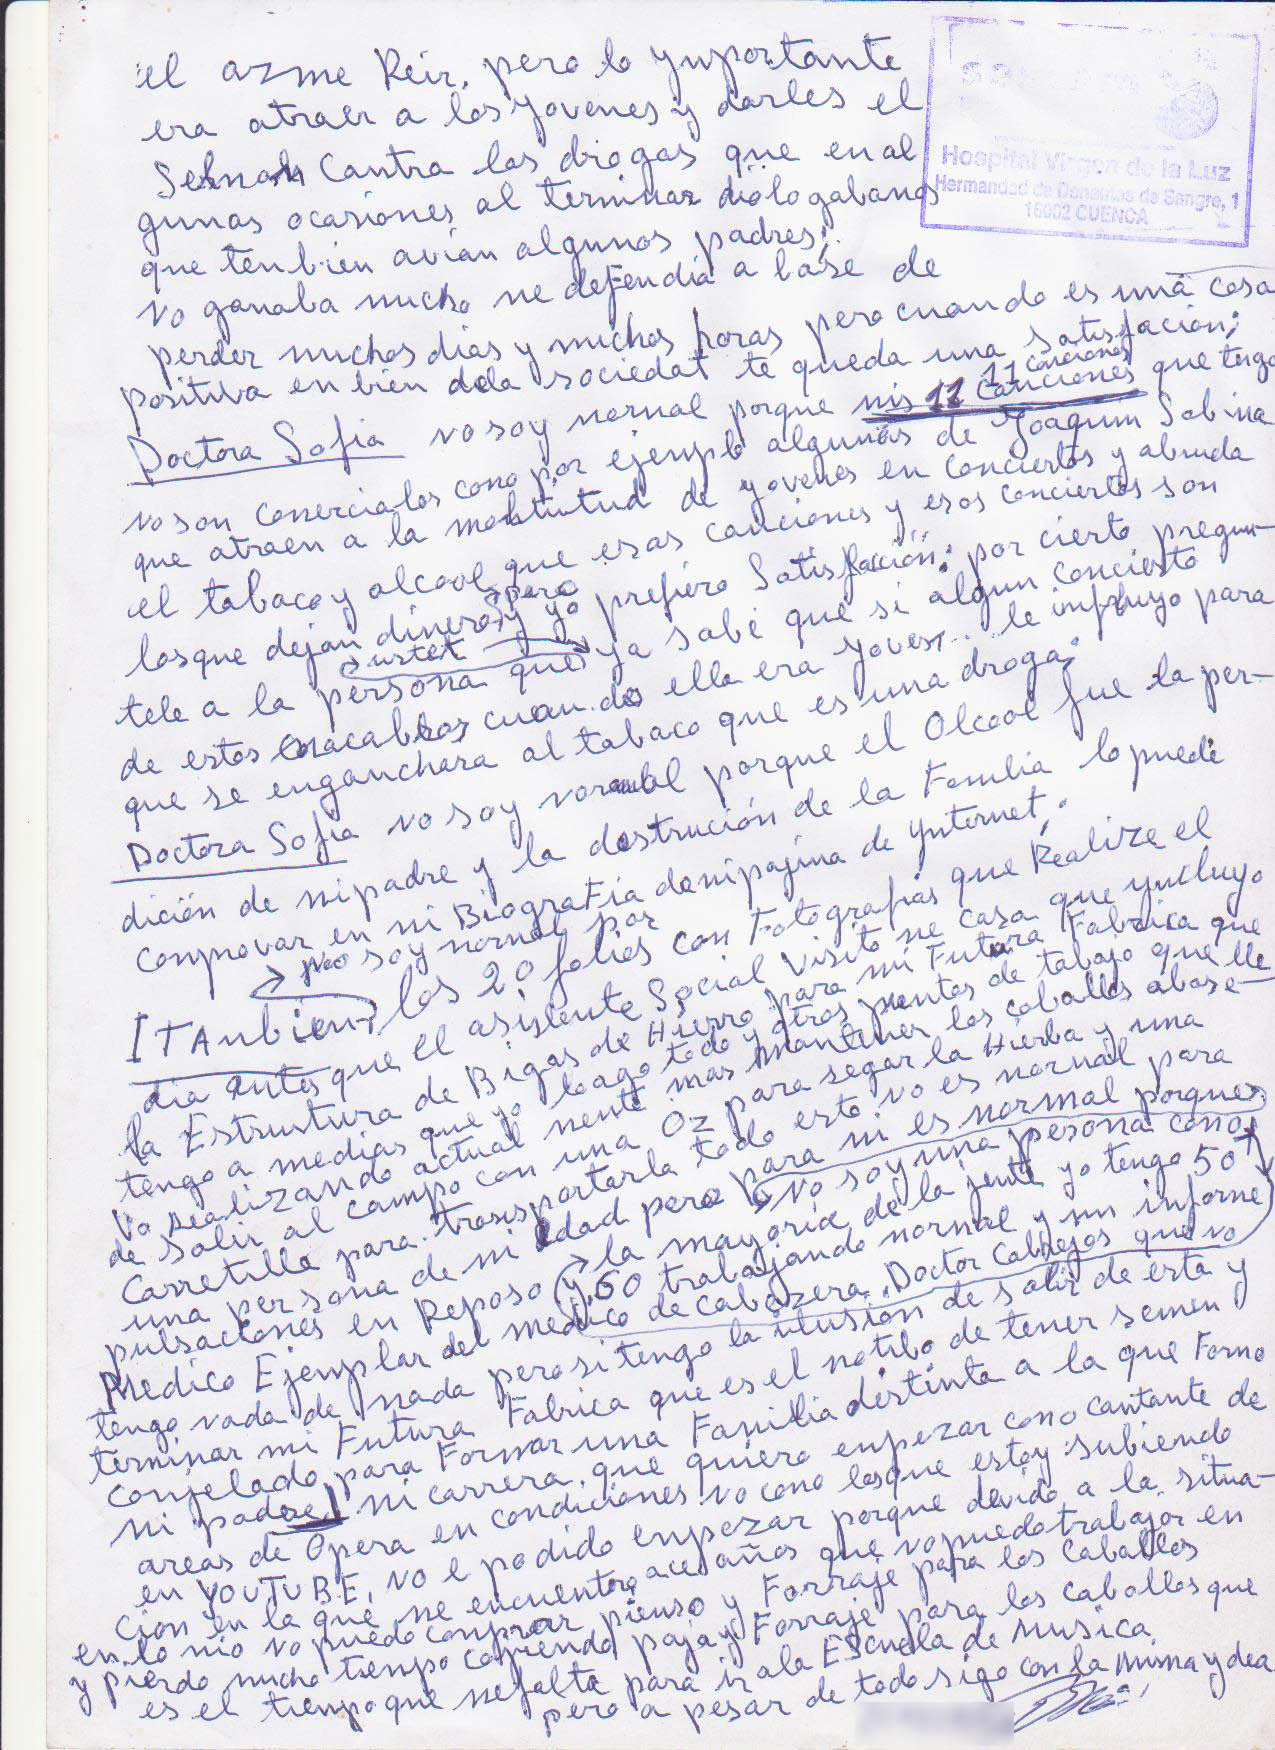 el azme Reir, pero lo ynportante
era atraer a los Jovenes y darles el
Contra las drogas que en al
gunas ocasiones al terminar diologabamos
que tenbien avian algunos padres;
No ganaba mucho me defendia a base de
perder muchos dias y muchas horas pero cuando es una cosa
positiva en bien dela sociedat te queda una satisfacion;
Doctora Sofia no soy normal porque mis 11 canciones que tengo
11 canciones
no son comerciales como por ejemplo algunas de Joaquin Sabina
que atraen a la multitud de yovenes en conciertos y abunda
el tabaco y alcool que esas canciones y esos conciertos son
losque dejan dinero y yo prefiero Satisfacción; por cierto pregun-
pero
ustet
tele a la persona que ya sabe que si algun concierto
de estos macabros cuando ella era Joven... le influyo para
que se enganchara al tabaco que es una droga;
Doctora Sofia no soy normal porque el Olcool fue la per-
dición de mi padre y la destrución de la Familia lo puede
comprovar en mi Biografia de mi pajina de ynternet;
no soy normal por
ITAnbien, los 20 folios con Fotografias que Realize el
dia antes que el asistente Social Visito me casa que yncluyo
la Estrustura de Bigas de Hierro para mi Futura Fabrica que
tengo a medias que yo lo ago todo y otros puestos de tabajo que lle
vo realizando actual mente mas mantener los caballos abase-
de salir al campo con una Oz para segar la Hierba y una
carretilla para trasportarla todo esto no es normal para
una persona de mi edad pero para mi es normal porque
no soy una pesona como
pulsaciones en Reposo y 60 trabajando normal y un informe
la mayoria de la jente yo tengo 50
Medico Ejemplar del medico de cabezera Doctor Callejos que no
tengo nada de nada pero si tengo la ilusión de salir de esta y
terminar mi Futura Fabrica que es el motibo de tener semen
conjelado para Formar una Familia distinta a la que Formo
mi padre, mi carrera que quiero enpezar como cantante de
areas de Opera en condiciones no como las que estoy subiendo
en YOUTUBE, no e podido enpezar porque devido a la situa-
cion en la que me encuentro ace años que no puedo trabajar en
en lo mio no puedo comprar pienso y Forraje para los caballos
y pierdo mucho tiempo cojiendo paja y Forraje para los caballos que
es el tiempo que me falta para ir a la Escuela de Musica
pero a pesar de todo sigo con la misma ydea
Hospital Virgen de la Luz
Hermandad de Donantes de Sangre, 1
16002 CUENCA